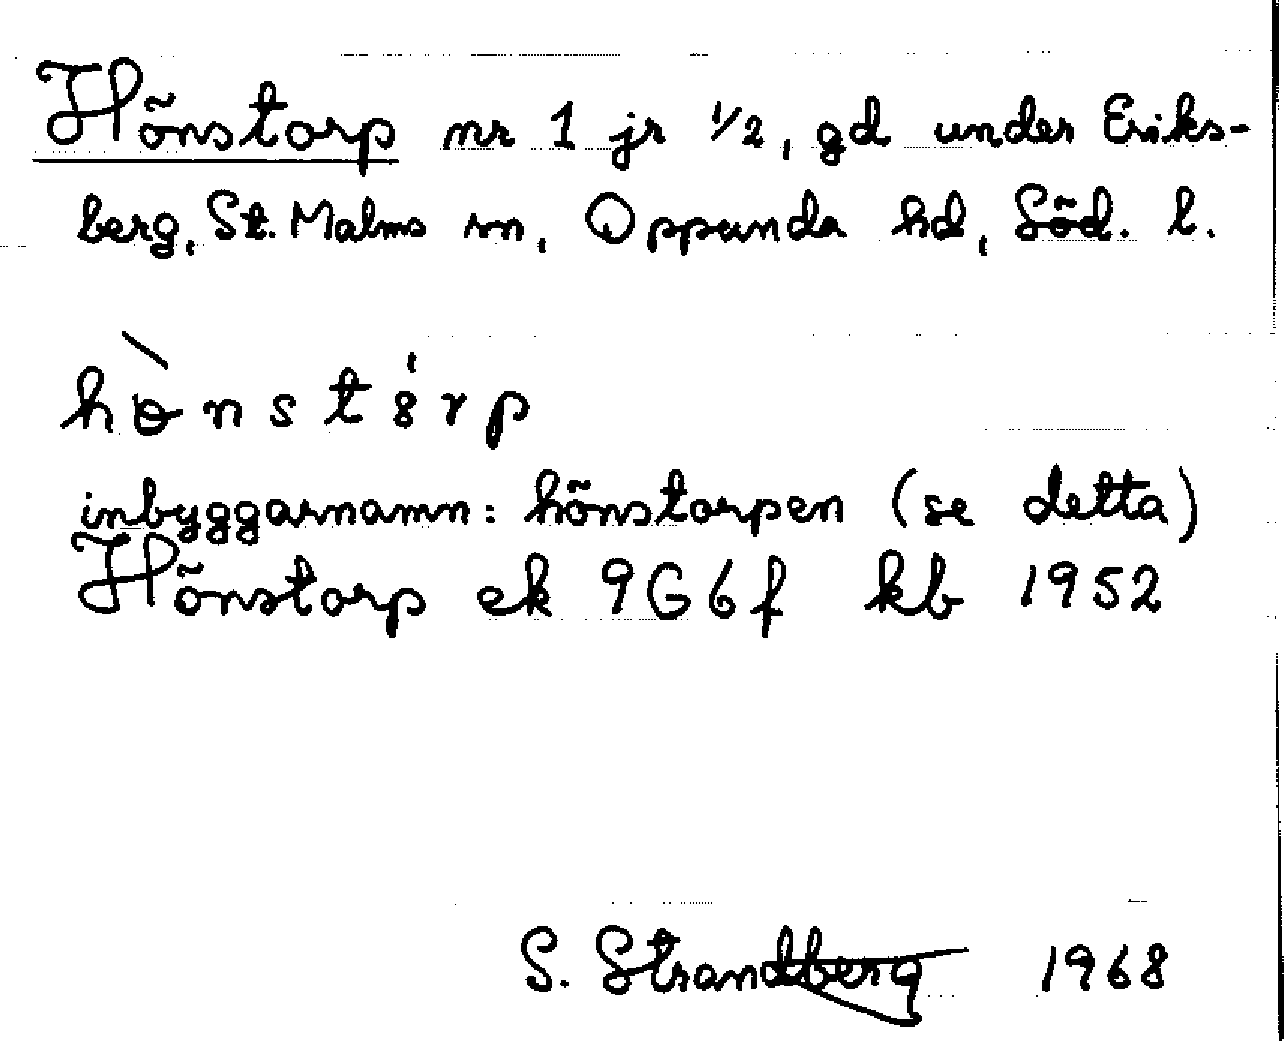 Hönstorp nr 1 jr 1/2, gd under Eriks-
berg, St. Malms sn, Oppunda hd, Söd. l.
inbyggarnamn: hönstorpen (se detta)
Hönstorp ek 9G6f kb 1952
S. Strandberg 1968